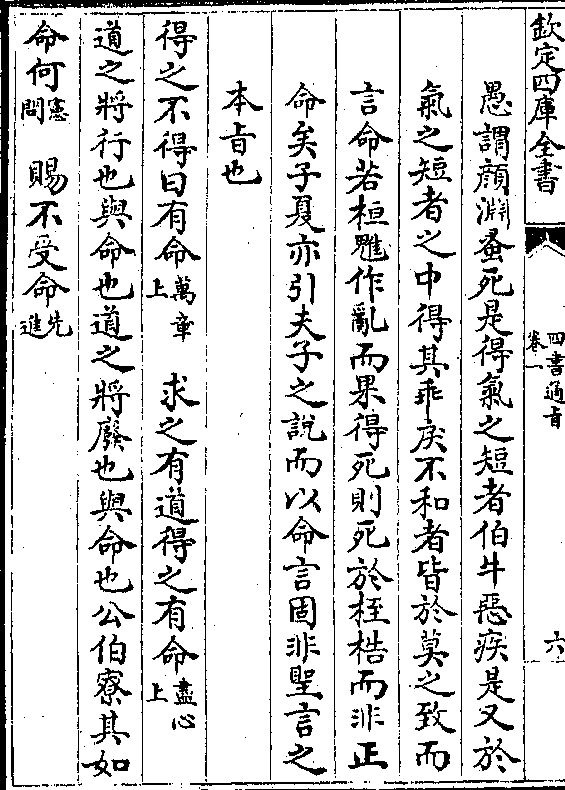 欽定四庫全書
四書通旨
卷一
六
愚謂顔淵蚤死是得氣之短者伯牛惡疾是又於
氣之短者之中得其乖戾不和者皆於莫之致而
言命若桓魋作亂而果得死則死於桎梏而非正
命矣子夏亦引夫子之說而以命言固非聖言之
本旨也
得之不得曰有命萬章上　求之有道得之有命盡心上
道之將行也與命也道之將廢也與命也公伯寮其如
命何憲問　賜不受命先進